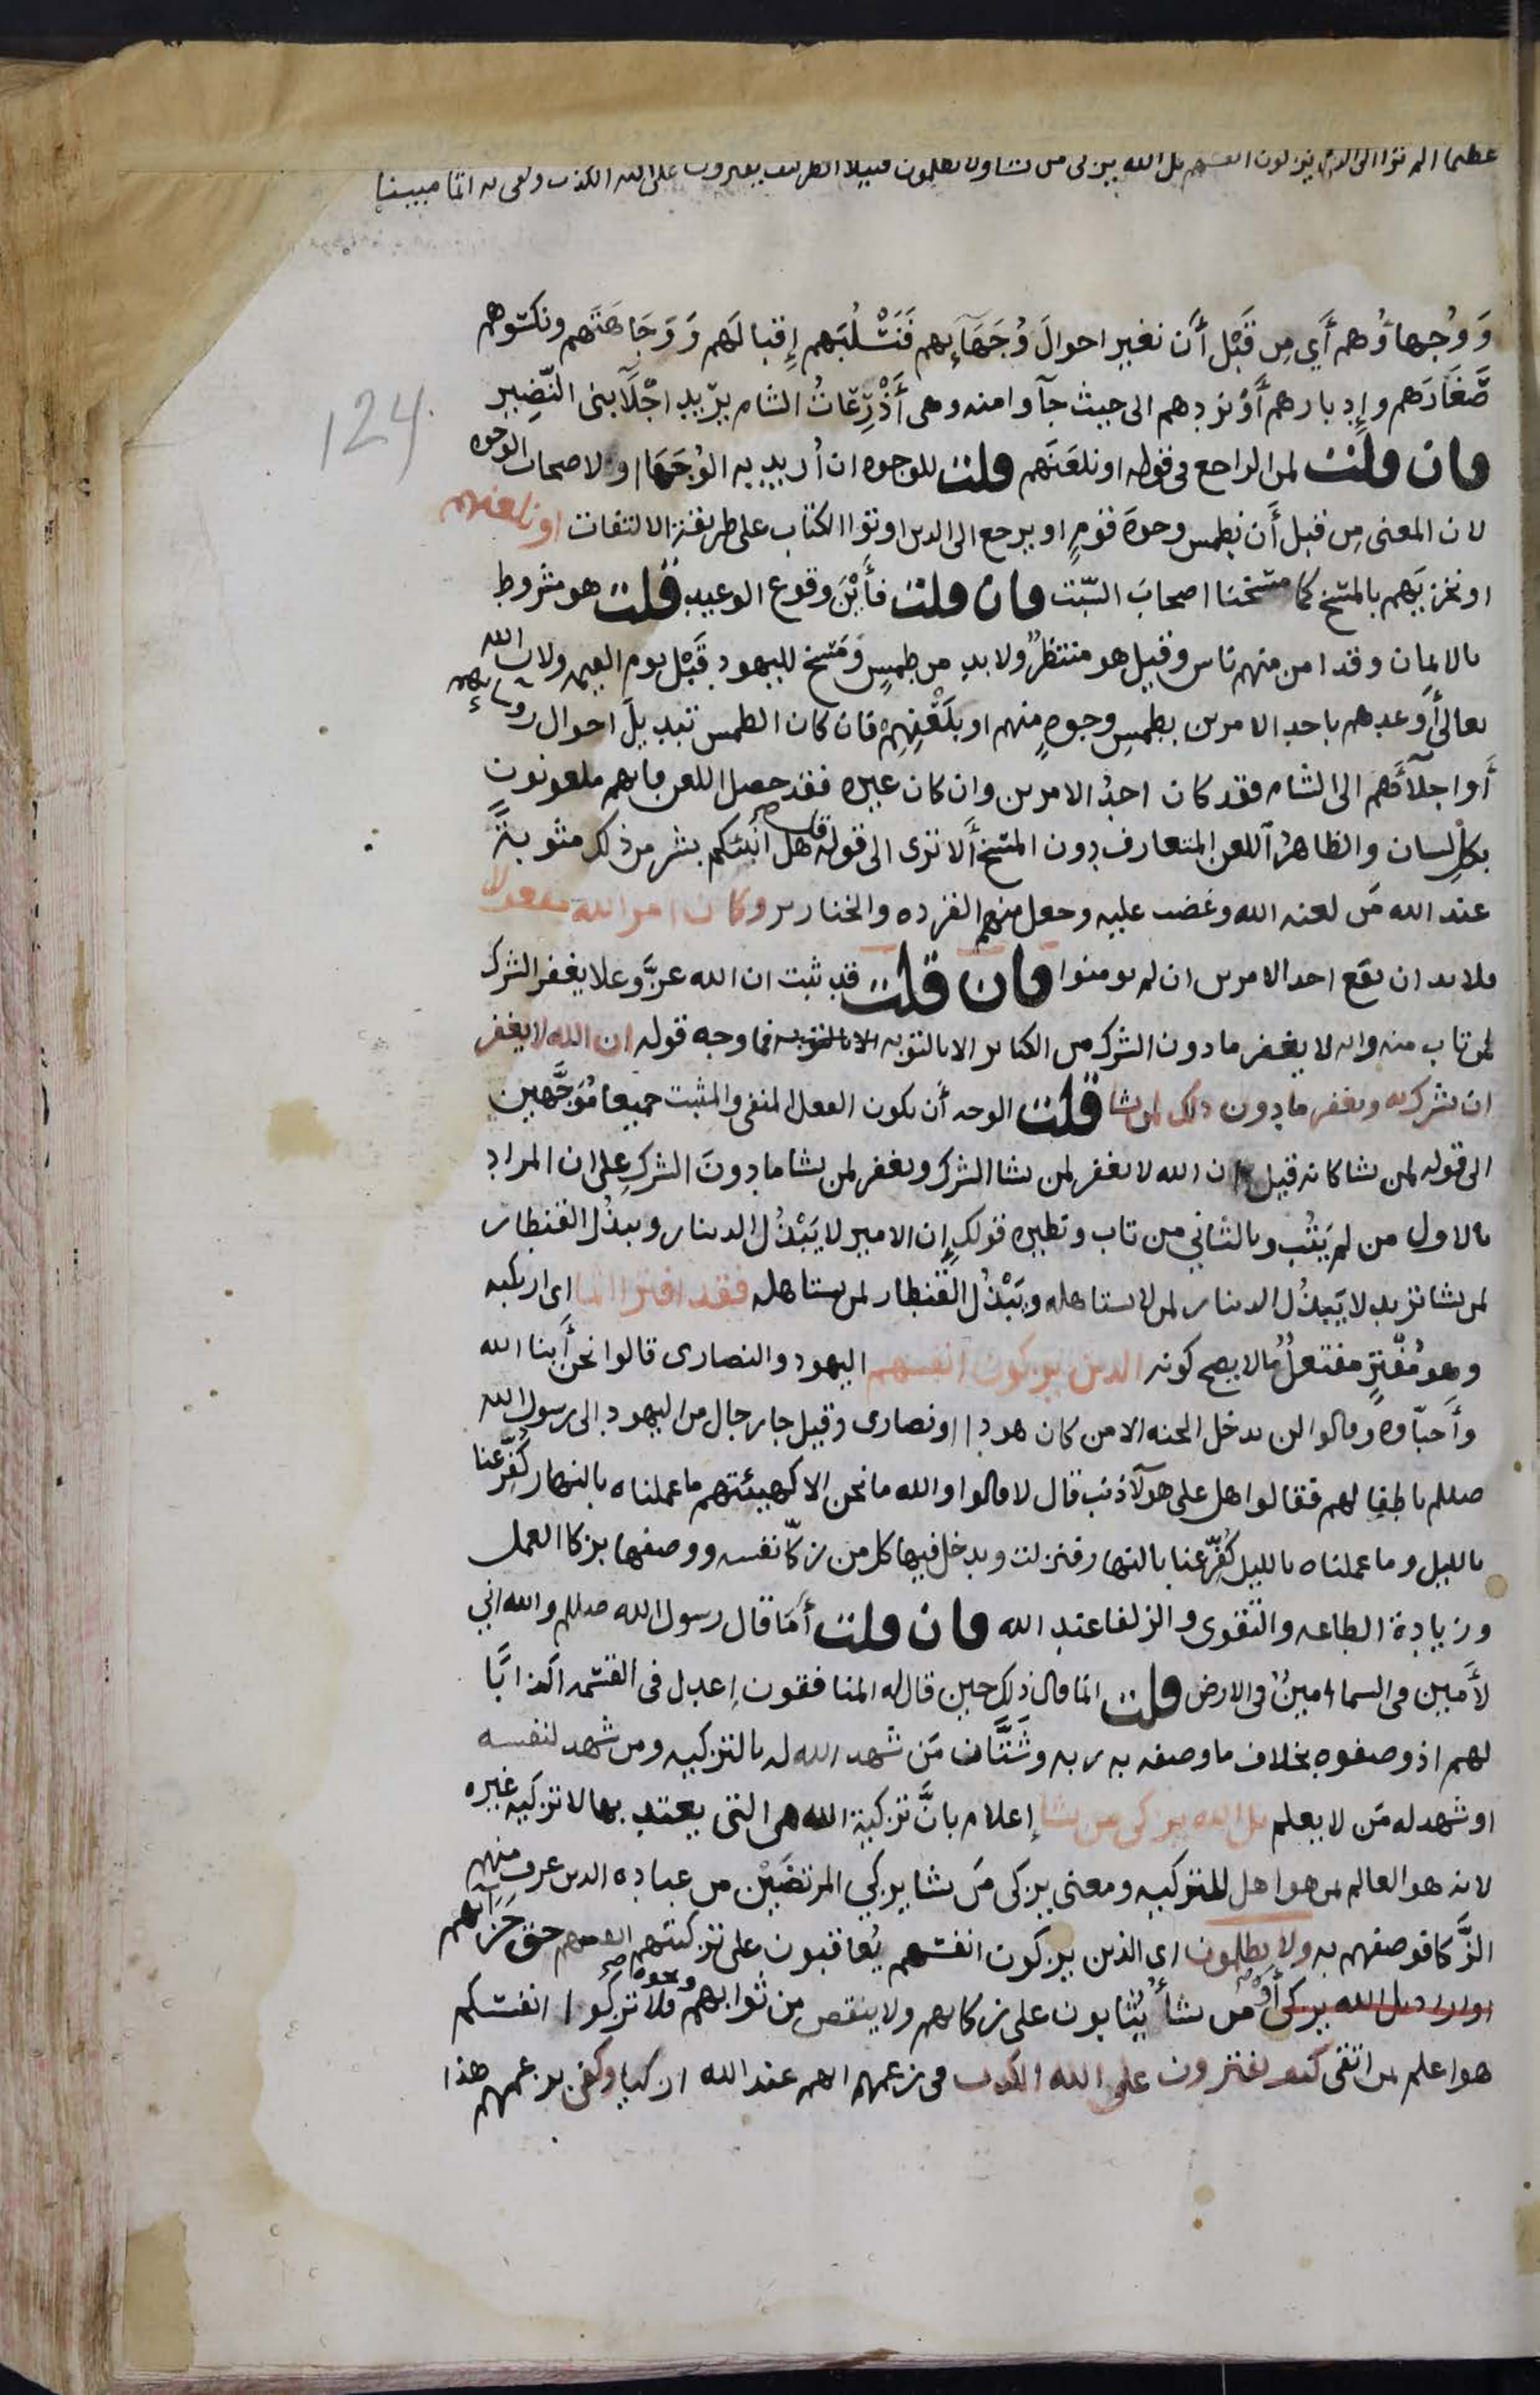 عظيما الم تر الى الذين يزكون انفسهم بل الله يزكى من يشا ولا يظلمون فتيلا انظر كيف يفترون على الله الكذب وكفى به اثما مبينا
وَوُجهاؤُهم أَي مِن قَبْل أَن نغير احوالَ وُجَهَآئِهم فَنَسْلُبَهم إِقبالَهم وَوَجَاهَتَهم ونكسوهم
صَغَارَهم وإِدبارهم أَوْ نردهم الى حيث جآوا منه وهى أَذْرِعَاتُ الشام يريد اجْلآ بنى النَّضِير
فان قلت لمن الراجع فى قوله او نلعنَهم قلت للوجوه ان أُريد به الوُجَهَا او لاصحاب الوجوه
لان المعنى مِن قبل أَن نطمس وجوهَ قومٍ او يرجع الى الذين اوتوا الكتاب على طريقة الالتفات او نلعنهم
او نخزيَهم بالمسخ كما مسخنا اصحابَ السّبْت فان قلت فأَيْنَ وقوع الوعيد قلت هو مشروط
بالايمان وقد امن منهم ناس وقيل هو منتظرٌ ولا بد من طمسٍ ومَسْخ لليهود قَبْل يوم القيمه ولان الله
تعالى أَوعدهم باحد الامرين بطمسِ وجوهٍ منهم او بلَعْنِهِمْ فان كان الطمس تبديلَ احوال روسائهم
أَو اجلآئَهم الى الشام فقد كان احدُ الامرين وان كان غيره فقد حصل اللعن فانهم ملعونون
بكلِ لسان والظاهرُ اللعن المتعارف دون المسخ أَلا ترى الى قوله قل هل أُنبّئكم بشر من ذلك مثوبةً
عند الله مَن لعنه الله وغضب عليه وجعل منهم القردة والخنازير وكان امر الله مفعولا
فلا بد ان يقع احد الامرين ان لم يومنوا فان قلت قد ثبت ان الله عزَّ وعلا يغفر الشرك
لمن تاب منه وانه لا يغفر ما دون الشرك من الكبائر الا بالتوبه الا بالتوبه فما وجه قوله ان الله لا يغفر
ان يشرك به ويغفر ما دون ذلك لمن يشا قلت الوجه أَن يكون الفعل المنفى والمثبت جميعا مُوَجَّهين
الى قوله لمن يشا كانه قيل ان الله لا يغفر لمن يشا الشرك ويغفر لمن يشا ما دونَ الشركِ على ان المراد
بالاول من لم يَتُب وبالثانى من تاب ونظيره قولك إن الامير لا يَبْذُل الدينار ويبذُل القنطار
لمن يشا تريد لا يَبذُل الدينار لمن لا يستاهله ويَبْذُل القنطار لمن يستاهله فقد افترا اثما اى ارتكبه
وهو مُفْترٍ مفتعلٌ ما لا يصح كونه الذين يزكون انفسهم اليهود والنصارى قالوا نحن أَبنا الله
وأَحبّاوه وقالوا لن يدخل الجنه الا من كان هودا او نصارى وقيل جا رجال من اليهود الى رسول الله
صللم باطفا لهم فقالوا هل على هولآ ذنب قال لا قالوا والله ما نحن الا كهيئتهم ما عملناه بالنهار كُفّر عنا
بالليل وما عملناه بالليل كُفّر عنا بالنهار فنزلت ويدخل فيها كل من زكّا نفسه ووصفها بزكا العمل
وزيادة الطاعه والتقوى والزلفا عند الله فان قلت أَمَا قال رسول الله صللم والله انى
لأَمين فى السما امينٌ فى الارض قلت انما قال ذلك حين قال له المنافقون إِعدل فى القسمه اكذابًا
لهم اذ وصفوه بخلاف ما وصفه به ربه وشَتَّان مَن شهد الله له بالتزكيه ومن شهد لنفسه
او شهد له مَن لا يعلم بل الله يزكى من يشا إعلام بانَّ تزكية الله هى التى يعتد بها لا تزكية غيره
لانه هو العالم بمن هو اهل للتزكيه ومعنى يزكى مَن يشا يزكى المرتضَيْن من عباده الذين عرف منهم
الزَّكا فوصفهم به ولا يظلمون اى الذين يزكون انفسهم يُعاقبون على تزكيتهم انفسهم حق جزائهم
بل الله يزكى أو من يشأ يُثابون على زكائهم ولا ينقص من ثوابهم ونحوه فلا تزكوا انفسكم
هو اعلم بمن اتقى كيف يفترون على الله الكذب فى زعمهم انهم عند الله ازكيا وكفى بزعمهم هذا
124